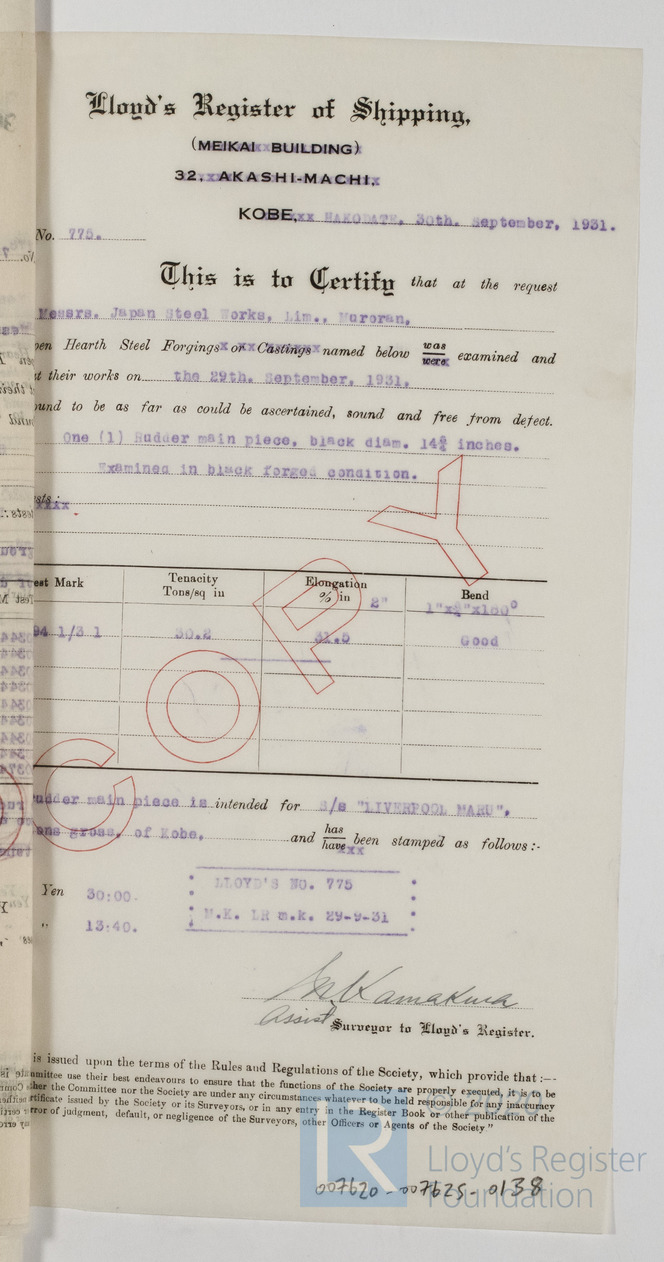 Lloyd's Register of Shipping,
(MEIKAI BUILDING)
32, AKASHI-MACHI,
KOBE, HAKODATE, 30th. September, 1931.
No. 775.
This is to Certify that at the request
Messrs. Japan Steel Works, Lim., Muroran,
pen Hearth Steel Forgings or Castings named below was were examined and
t their works on the 29th. September, 1931.
ound to be as far as could be ascertained, sound and free from defect.
One (1) Rudder main piece, black diam. 14¾ inches.
Examined in black forged condition.
sts:
est Mark Tenacity Tons/sq in Elongation % in 2" Bend 1"x¾"x180°
94 1/3 1 30.2 31.5 Good
COPY
rudder main piece is intended for S/s "LIVERPOOL MARU",
ons gross, of Kobe, and has have been stamped as follows:-
Yen 30:00.
" 13:40.
LLOYD'S NO. 775
M.K. LR m.k. 29-9-31
Kamakura
Assist Surveyor to Lloyd's Register.
is issued upon the terms of the Rules and Regulations of the Society, which provide that :—
mmittee use their best endeavours to ensure that the functions of the Society are properly executed, it is to be
ther the Committee nor the Society are under any circumstances whatever to be held responsible for any inaccuracy
rtificate issued by the Society or its Surveyors, or in any entry in the Register Book or other publication of the
rror of judgment, default, or negligence of the Surveyors, other Officers or Agents of the Society."
© 2020
LR
Lloyd's Register
Foundation
007620-007625-0138